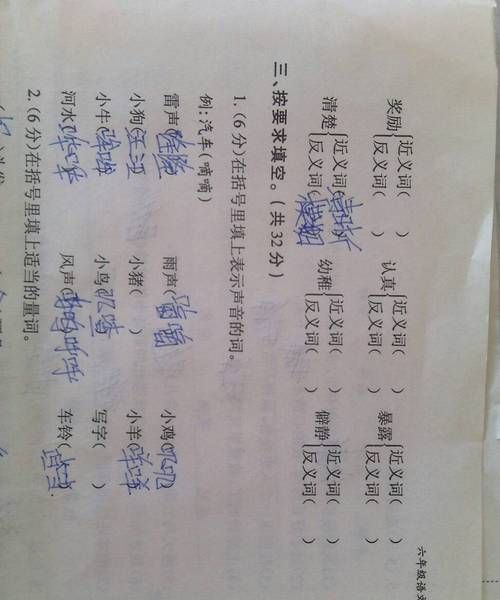 六年级语
近义词( ) 近义词( ) 近义词( )
奖励 认真 暴露
反义词( ) 反义词( ) 反义词( )
近义词(清晰) 近义词( ) 近义词( )
清楚 幼稚 僻静
反义词(模糊) 反义词( ) 反义词( )
三、按要求填空。(共32分)
1.(6分)在括号里填上表示声音的词。
例:汽车(嘀嘀)
雷声(隆隆) 雨声( ) 小鸡(叽叽)
小狗(汪汪) 小猪( ) 小羊(咩咩)
小牛( ) 小鸟( ) 写字( )
河水(哗哗) 风声( ) 车铃( )
2.(6分)在括号里填上适当的量词。